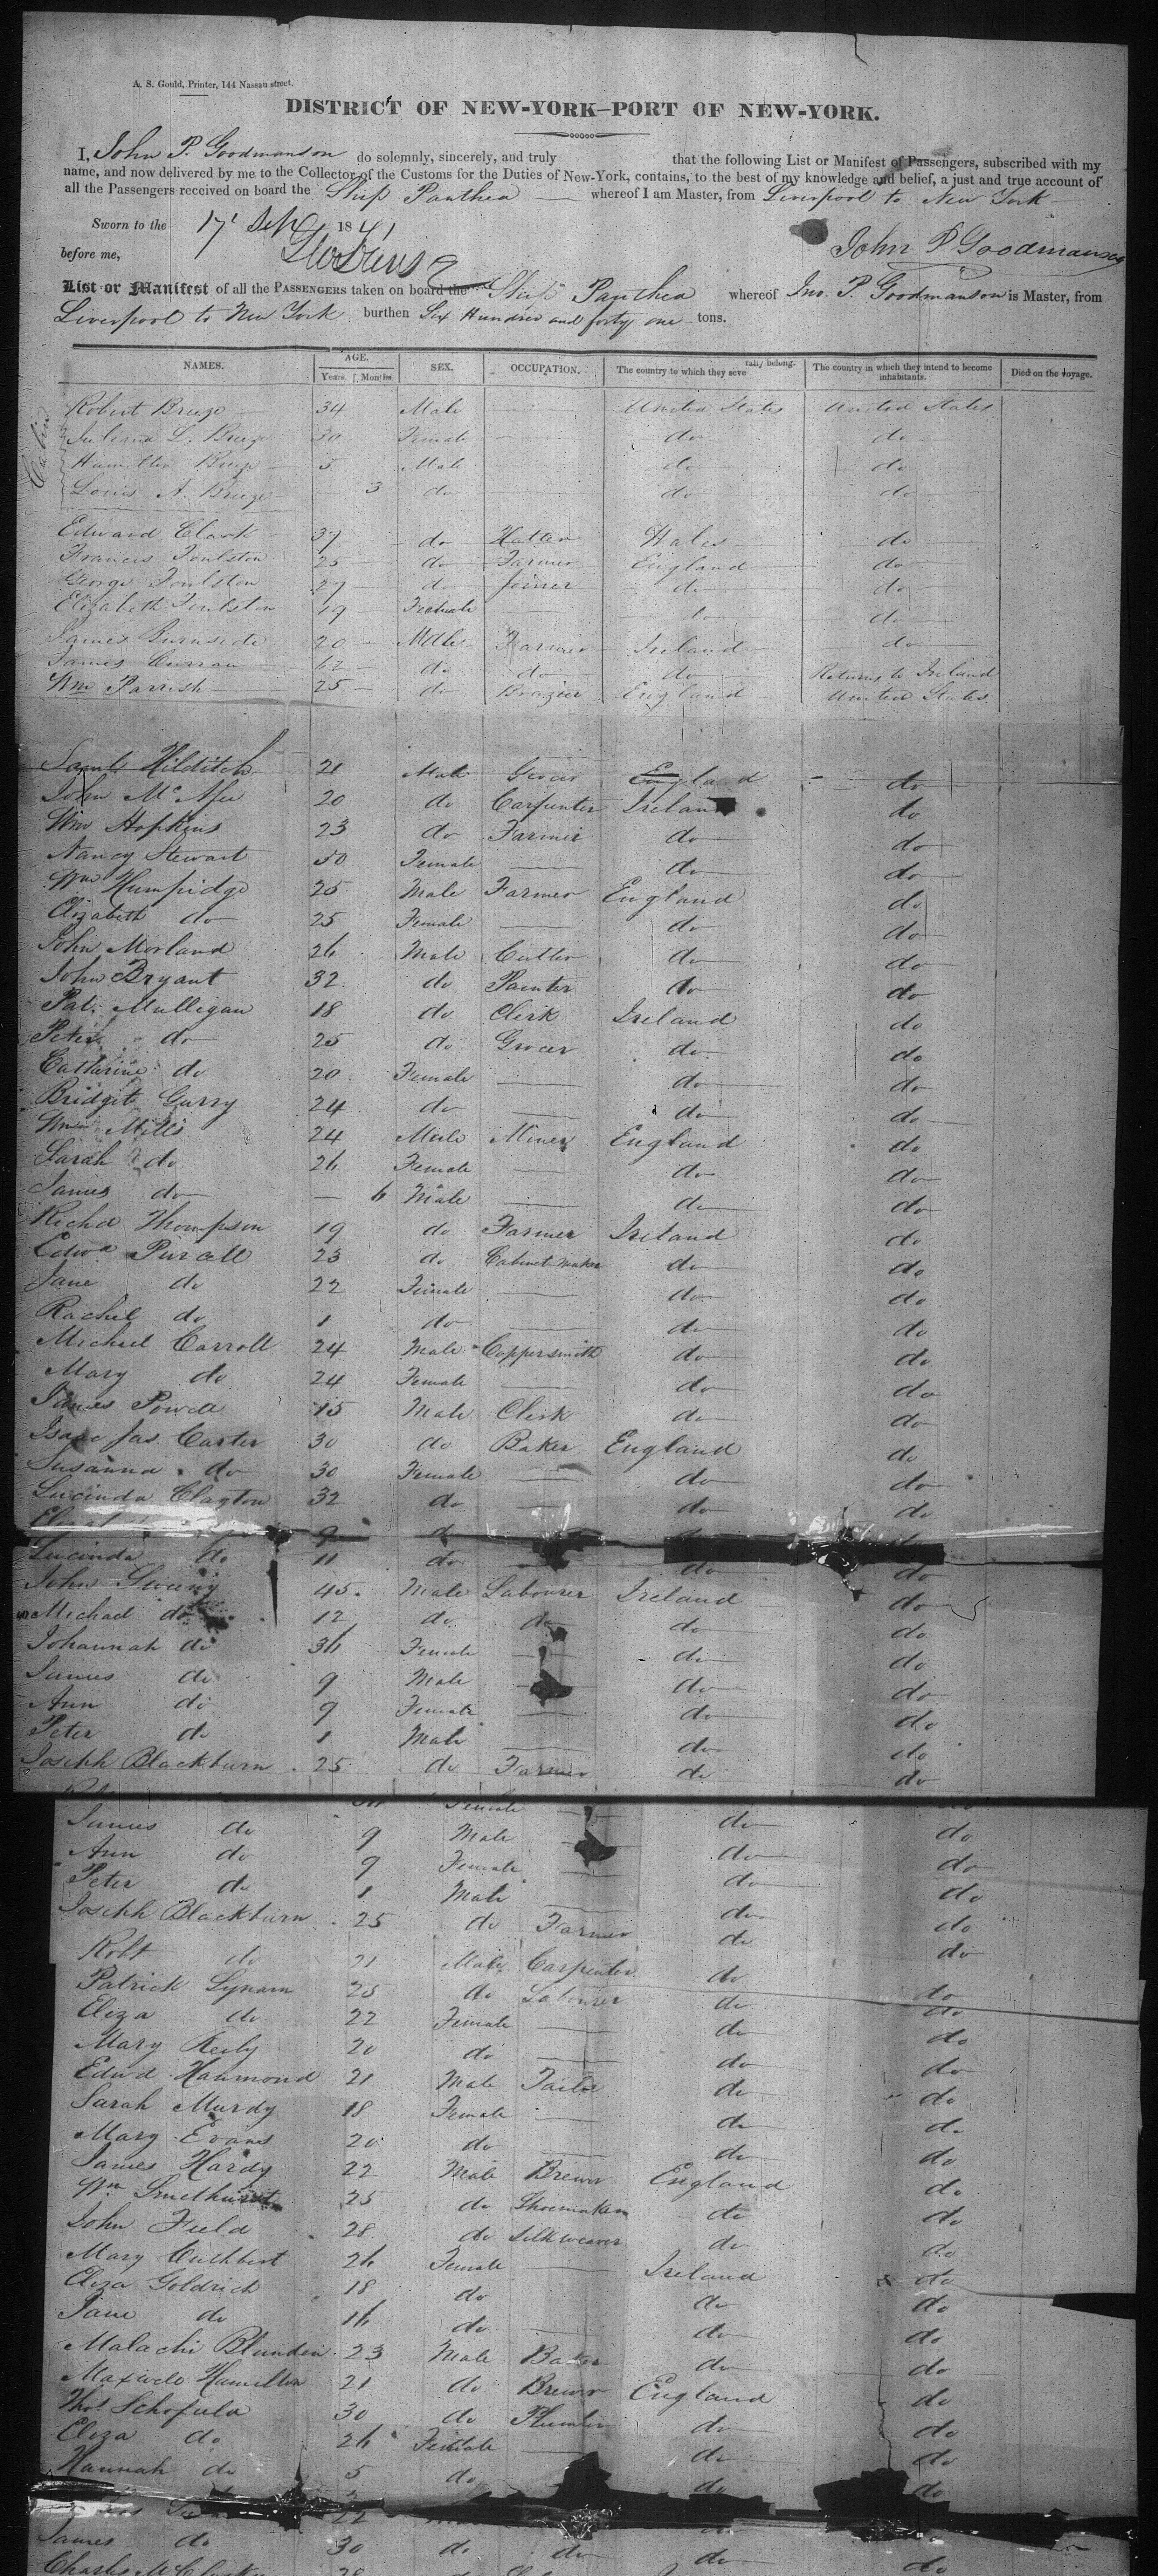 A. S. Gould, Printer, 144 Nassau street.
DISTRICT OF NEW-YORK–PORT OF NEW-YORK.
I, John P. Goodmanson do solemnly, sincerely, and truly that the following List or Manifest of Passengers, subscribed with my
name, and now delivered by me to the Collector of the Customs for the Duties of New-York, contains, to the best of my knowledge and belief, a just and true account of
all the Passengers received on board the Ship Panthea whereof I am Master, from Liverpool to New York
Sworn to the 17 Sep 1841
before me, John P Goodmanson
List or Manifest of all the PASSENGERS taken on board the Ship Panthea whereof Jno. P. Goodmanson is Master, from
Liverpool to New York burthen Six Hundred and forty one tons.
NAMES. AGE. Years. Months. SEX. OCCUPATION. The country to which they seve rally belong. The country in which they intend to become inhabitants. Died on the voyage.
Cabin
Robert Breeze 34 Male United States United States
Juliana L. Breeze 30 Female do do
Hamilton Breeze 5 Male do do
Louis A. Breeze 3 do do do
Edward Clark 37 do Hatter Wales do
Francis Toulston 25 do Farmer England do
George Toulston 27 do Joiner do do
Elizabeth Toulston 19 Female do do
James Burnside 20 Male Farmer Ireland do
James Curran 62 do do do Returns to Ireland
Wm Parrish 25 do Brazier England United States
Saml Hilditch 21 Male Grocer England do
John McAfee 20 do Carpenter Ireland do
Wm Hopkins 23 do Farmer do do
Nancy Stewart 50 Female do do
Wm Humpidge 25 Male Farmer England do
Elizabeth do 25 Female do do
John Morland 26 Male Cutler do do
John Bryant 32 do Painter do do
Pat. Mulligan 18 do Clerk Ireland do
Peter do 25 do Grocer do do
Catherine do 20 Female do do
Bridget Gurry 24 do do do
Wm Mills 24 Male Miner England do
Sarah do 26 Female do do
James do 6 Male do do
Richd Thompson 19 do Farmer Ireland do
Edwd Purcell 23 do Cabinet maker do do
Jane do 22 Female do do
Rachel do 1 do do do
Michael Carroll 24 Male Coppersmith do do
Mary do 24 Female do do
James Powell 15 Male Clerk do do
Isaac Jas. Carter 30 do Baker England do
Susanna do 30 Female do do
Lucinda Clayton 32 do do do
9 d
Lucinda do 11 do do do
John 45 Male Labourer Ireland do
Michael do 12 do do do do
Johannah do 36 Female do do
James do 9 Male do do
Ann do 9 Female do do
Peter do 1 Male do do
Joseph Blackburn 25 do Farmer do do
Female
James do 9 Male do do
Ann do 9 Female do do
Peter do 1 Male do do
Joseph Blackburn 25 do Farmer do do
Robt do 21 Male Carpenter do do
Patrick Lynam 25 do Labourer do do
Eliza do 22 Female do do
Mary Reily 20 do do do
Edwd Hammond 21 Male Tailor do do
Sarah Murdy 18 Female do do
Mary Evans 20 do do do
James Hardy 22 Male Brewer England do
Wm Smethurst 25 do Shoemaker do do
John Field 28 do Silk weaver do do
Mary Cuthbert 26 Female Ireland do
Eliza Goldrich 18 do do do
Jane do 16 do do do
Malachi Blunden 23 Male Baker do do
Maxwell Hamilton 21 do Brewer England do
Thos Schofield 30 do Plumber do do
Eliza do 26 Female do do
Hannah do 5 do do do
22
James do 30 do do do do
Charles McClusky 28